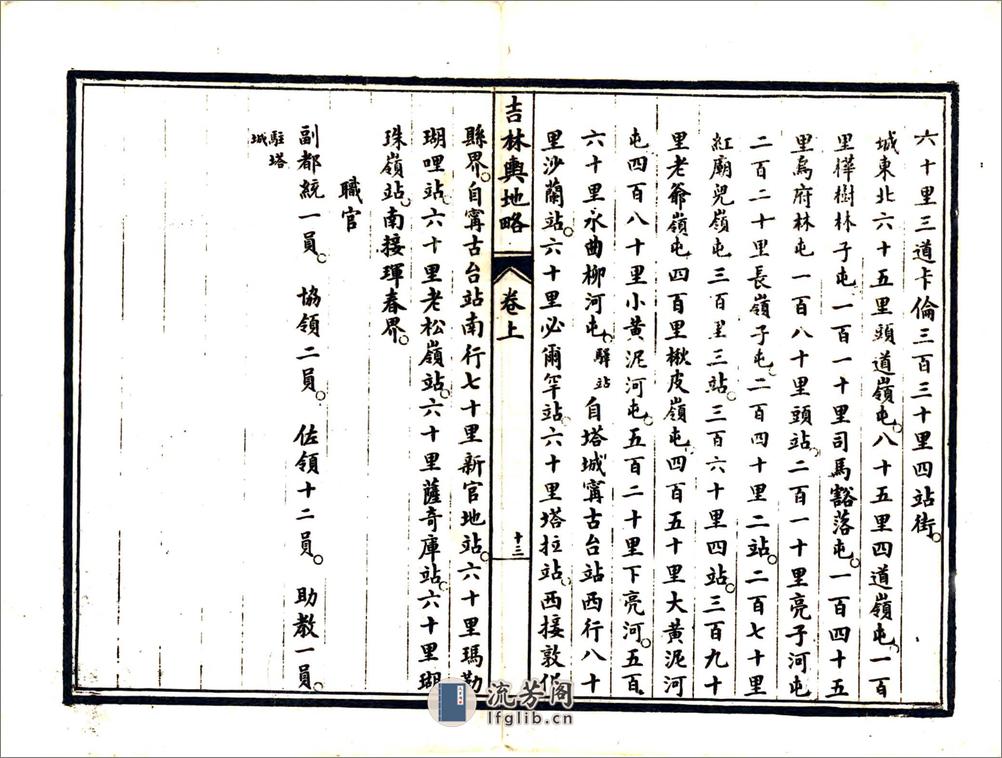 六十里三道卡倫三百三十里四站街。
城東北六十五里頭道嶺屯。八十五里四道嶺屯。一百
里樺樹林子屯。一百一十里司馬豁落屯。一百四十五
里烏府林屯一百八十里頭站。二百一十里亮子河屯
二百二十里長嶺子屯。二百四十里二站。二百七十里
紅廟兒嶺屯三百里三站。三百六十里四站。三百九十
里老爺嶺屯四百里楸皮嶺屯。四百五十里大黃泥河
屯四百八十里小黃泥河屯。五百二十里下亮河。五百
六十里永曲柳河屯。驛站自塔城甯古台站西行八十
里沙蘭站。六十里必爾罕站。六十里塔拉站。西接敦化
吉林輿地略
卷上
十三
縣界。自甯古台站南行七十里新官地站。六十里瑪勒
瑚哩站。六十里老松嶺站。六十里薩奇庫站。六十里瑚
珠嶺站。南接琿春界。
職官
副都統一員。協領二員。佐領十二員。助教一員。
駐塔
城
流芳阁
lfglib.cn